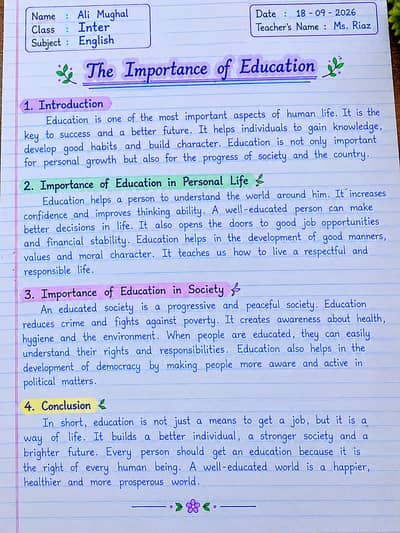 Name : Ali Mughal
Class : Inter
Subject : English
Date : 18 - 09 - 2026
Teacher's Name : Ms. Riaz
The Importance of Education
1. Introduction
Education is one of the most important aspects of human life. It is the
key to success and a better future. It helps individuals to gain knowledge,
develop good habits and build character. Education is not only important
for personal growth but also for the progress of society and the country.
2. Importance of Education in Personal Life
Education helps a person to understand the world around him. It increases
confidence and improves thinking ability. A well-educated person can make
better decisions in life. It also opens the doors to good job opportunities
and financial stability. Education helps in the development of good manners,
values and moral character. It teaches us how to live a respectful and
responsible life.
3. Importance of Education in Society
An educated society is a progressive and peaceful society. Education
reduces crime and fights against poverty. It creates awareness about health,
hygiene and the environment. When people are educated, they can easily
understand their rights and responsibilities. Education also helps in the
development of democracy by making people more aware and active in
political matters.
4. Conclusion
In short, education is not just a means to get a job, but it is a
way of life. It builds a better individual, a stronger society and a
brighter future. Every person should get an education because it is
the right of every human being. A well-educated world is a happier,
healthier and more prosperous world.